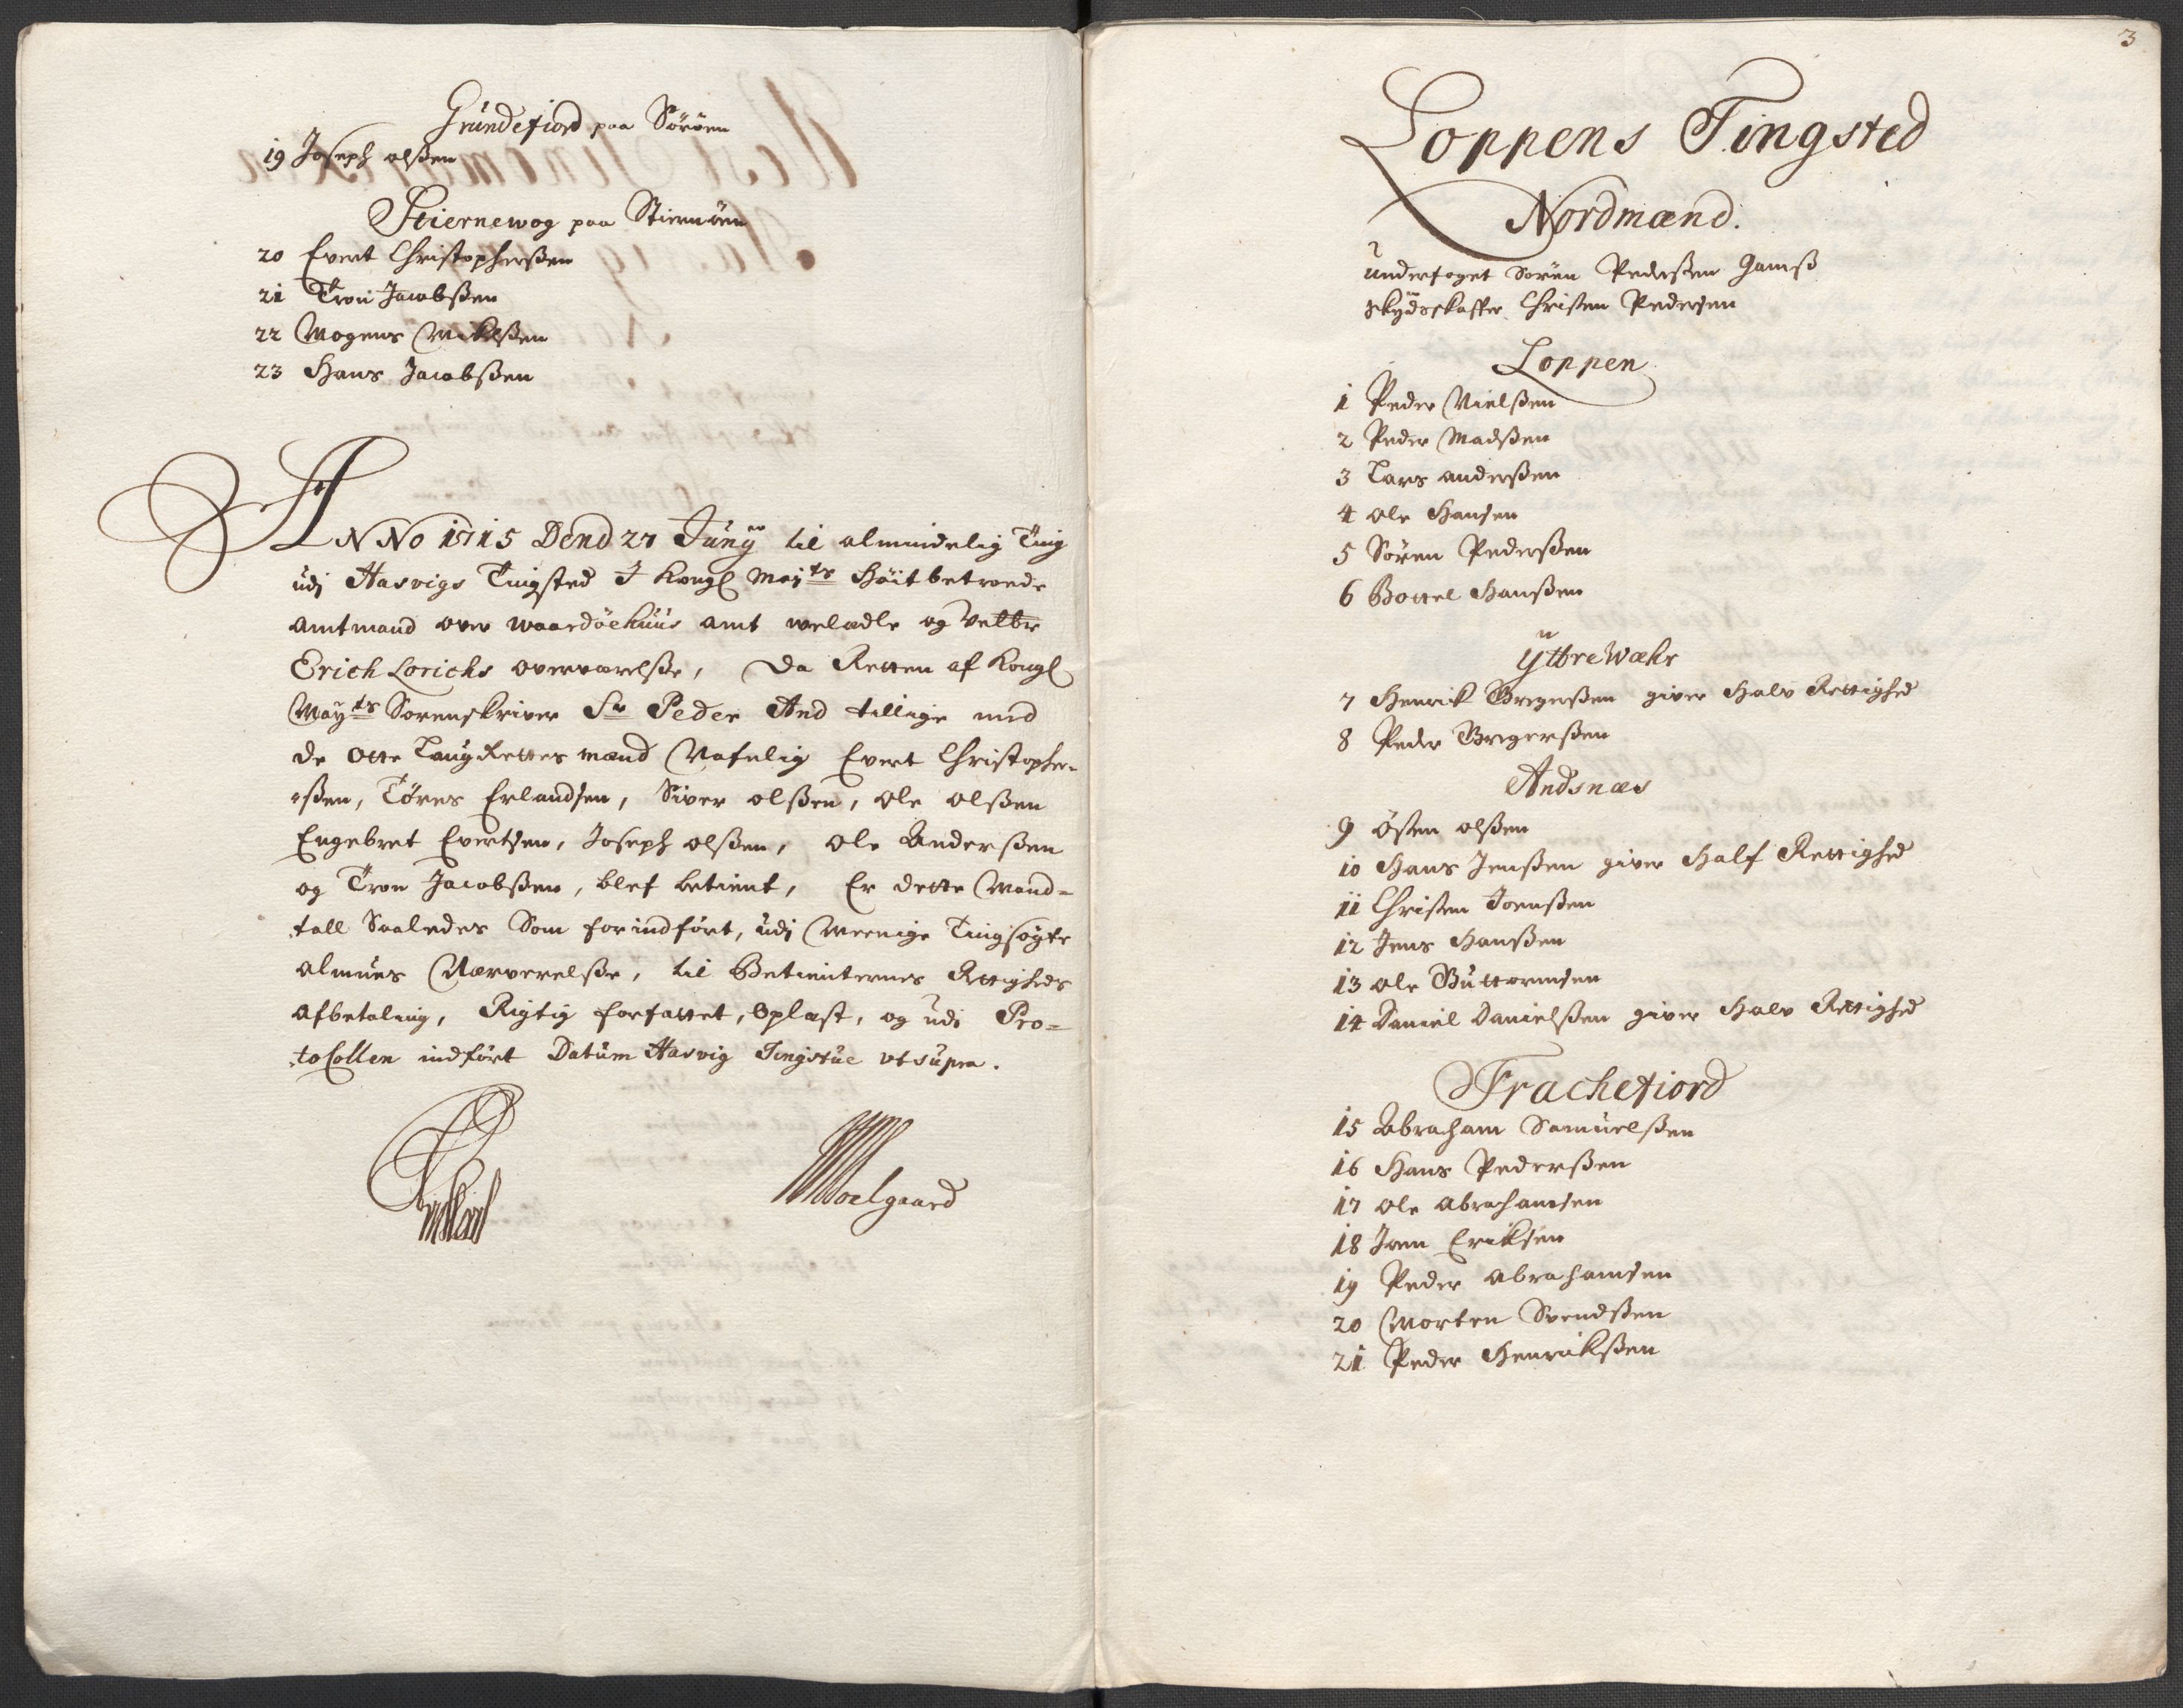 Grúndefiord paa Söröen
19 Joseph olßen
Stiernewog paa Stiernöen
20 Evert Christopherßen
21 Tron Jacobßen
22 Mogens Mikelßen
23 Hans Jacobßen
ANNo 1715 Dend 27 Júny til almindelig Ting
udj Hasvigs Tingsted I Kongl Maj:ts Höitbetroede
Amtmand over Waardöehuús Amt welædle og Velb:
Erich Lorichs overværelße, Da Retten af Kongl
May:ts Sorenskriver Sr Peder And tillige med
de Otte LaugRettes mænd Nafnlig Evert Christopher-
ßen, Töres Erlandsen, Siver olßen, Ole olßen
Engebret Evertsen, Joseph olßen, Ole Anderßen
og Tron Jacobßen, blef betient, Er dette Mand-
tall Saaledes Som forindfört, udj Meenige Tingsögte
Almues Nærverelße, til Betienternes Rettigheds
Afbetaling, Rigtig forfattet, Oplæst, og udi Pro-
toCollen indfört Datum Hasvig Tingstúe ut súpra.
3
Loppens Tingsted
Nordmænd.
Underfoget Sören Pederßen Gamß
Skydsskaffer Christen Pedersen
Loppen
1 Peder Nielßen
2 Peder Madßen
3 Lars Anderßen
4 Ole Hansen
5 Sören Pederßen
6 Bottel Hanßen
YttreWæhr
7 Henrik Bregerßen giver Halv Rettighed
8 Peder Bregerßen
Andsnæs
9 Östen olßen
10 Hans Jenßen giver Half Rettighed
11 Christen Joenßen
12 Jens Hanßen
13 Ole Guttormsen
14 Daniel Danielßen giver Halv Rettighed
Frachefiord
15 Abraham Samúelßen
16 Hans Pederßen
17 Ole Abrahamsen
18 Joen Eriksen
19 Peder Abrahamsen
20 Morten Svendßen
21 Peder Henrikßen